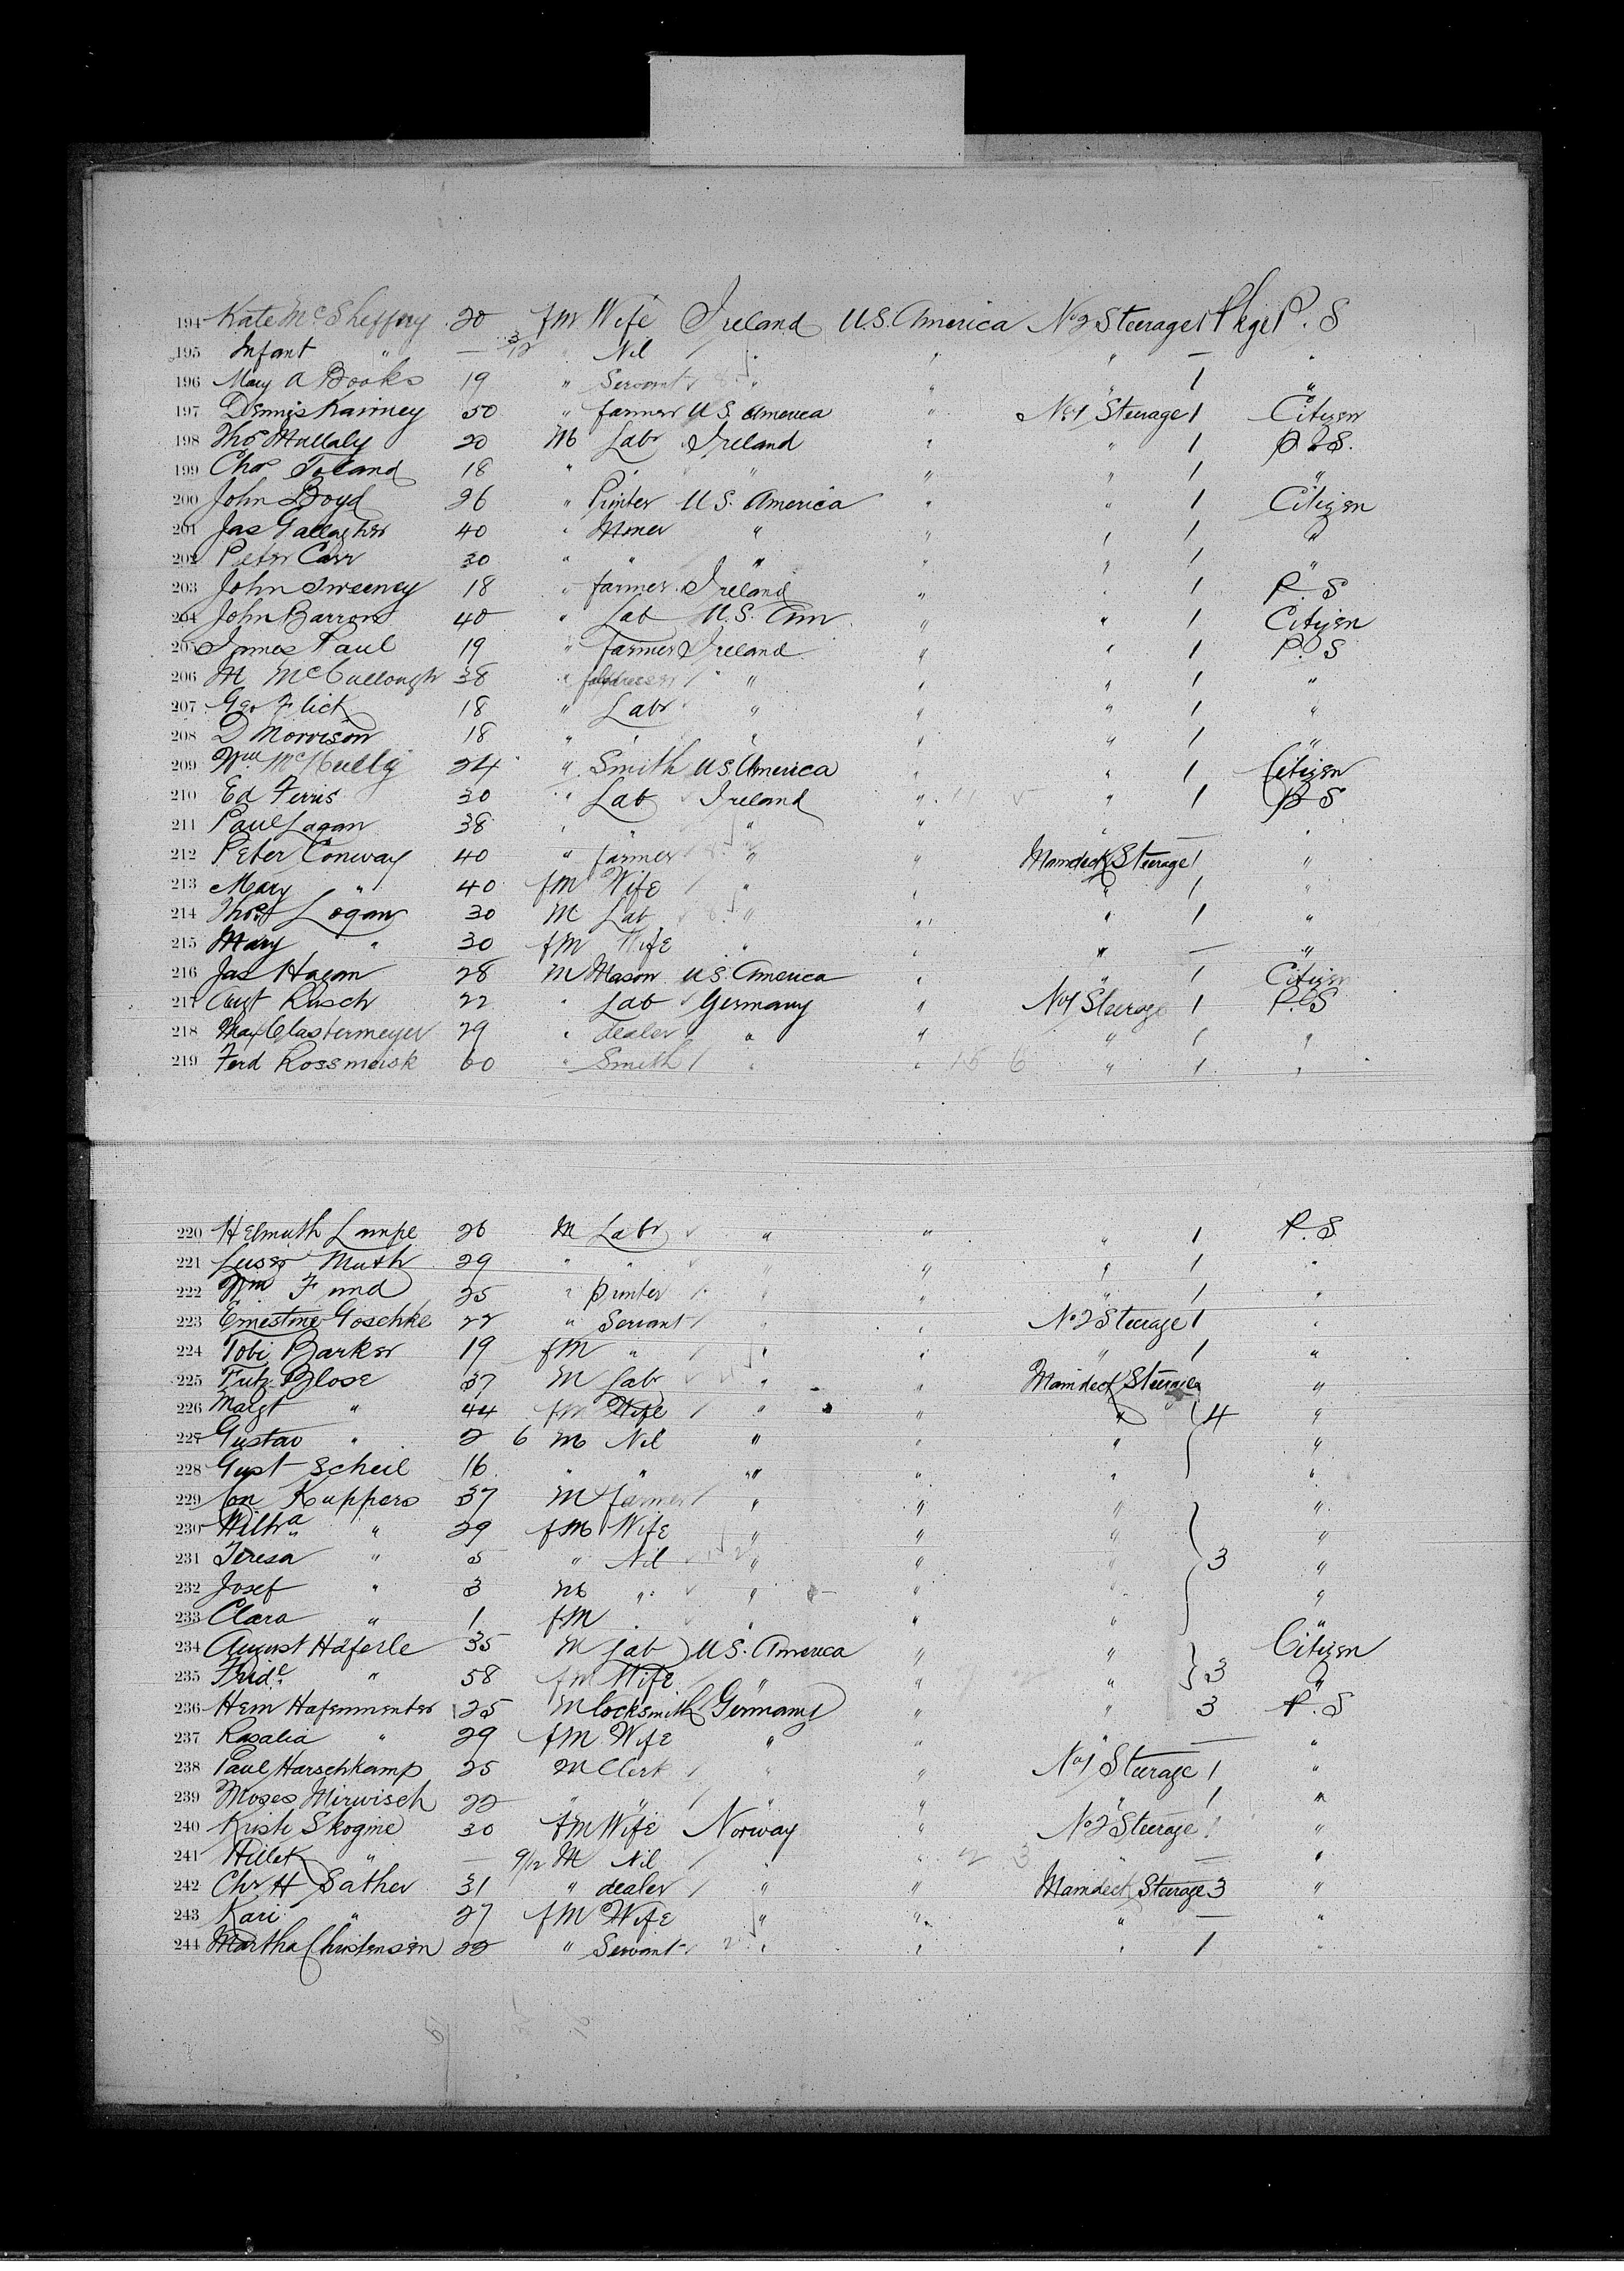 194 Kate McSheffery 20 fm Wife Ireland U.S. America No 2 Steerage 1 Pkge P. S
195 Infant " — 3/12 " Nil " " " — "
196 Mary A Books 19 " Servant " " " 1 "
197 Dennis Kairney 50 " farmer U.S. America " No 1 Steerage 1 Citizen
198 Thos Mullaly 20 M Labr Ireland " " 1 P.S.
199 Chas Toland 18 " " " " " 1 "
200 John Boyd 26 " Printer U.S. America " " 1 Citizen
201 Jas Gallagher 40 " Miner " " " 1 "
202 Peter Carr 30 " " " " " 1 "
203 John Sweeney 18 " farmer Ireland " " 1 P. S
204 John Barron 40 " Lab U.S. Am " " 1 Citizen
205 James Paul 19 " farmer Ireland " " 1 P. S
206 M McCullough 38 " " " " 1 "
207 Geo Flick 18 " Labr " " " 1 "
208 D Morrison 18 " " " " " 1 "
209 Wm 24 " Smith U.S. America " " 1 Citizen
210 Ed Ferris 30 " Lab Ireland " " 1 P S
211 Paul Lagan 38 " " " " " — "
212 Peter Conway 40 " farmer " " Maindeck Steerage 1 "
213 Mary " 40 fm Wife " " " 1 "
214 Thos Logan 30 M Lab " " " 1 "
215 Mary " 30 fm Wife " " " — "
216 Jas Hagan 28 M Mason U.S. America " " 1 Citizen
217 Augt Rusch 22 " Lab Germany " No 1 Steerage 1 P. S
218 Max Clastermeyer 29 " dealer " " " 1 "
219 Ferd Rossmeisk 60 " Smith " " 15 6 " 1 "
220 Helmuth Lampe 26 M Labr " " " 1 P. S
221 Muth 29 " " " " " 1 "
222 Wm Fund 25 " Printer " " " 1 "
223 Ernestine Goschke 22 " Servant " " No 2 Steerage 1 "
224 Tobi Barker 19 fm " " " " 1 "
225 Fritz Blose 37 M Labr " " Maindeck Steerage "
226 Margt " 44 fm Wife " " " 4 "
227 Gustav " 2 6 M Nil " " " "
228 Gust Scheil 16 " " " " " "
229 Con Kuppers 37 M farmer " " " "
230 Wilha " 29 fm Wife " " " "
231 Teresa " 5 " Nil " " " 3 "
232 Josef " 3 M " " " " "
233 Clara " 1 fm " " " " "
234 August Häferle 35 M Lab U.S. America " " Citizen
235 Fride " 58 fm Wife " " " 3 "
236 Hein Hafenmenter 25 M locksmith Germany " " 3 P. S
237 Rosalia " 29 fm Wife " " " — "
238 Paul Harschkamp 25 M Clerk " " No 1 Steerage 1 "
239 Moses Mirwisch 22 " " " " " 1 "
240 Kristi Skogine 30 fm Wife Norway " No 2 Steerage 1 "
241 Hillek " — 9/12 M Nil " " 2 3 " — "
242 Chr H Sather 31 " dealer " " Maindeck Steerage 3 "
243 Kari " 27 fm Wife " " " — "
244 Martha Christensen 22 " Servant " " " 1 "